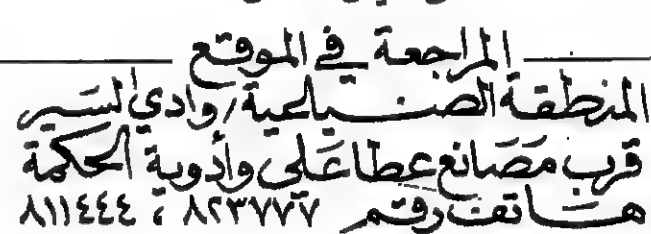 المراجعة في الموقع
المنطقة الصناعية / وادي السير
قرب مصانع عطا علي وأدوية الحكمة
هاتف رقم ٨٢٣٧٧٧ ، ٨١١٤٤٤